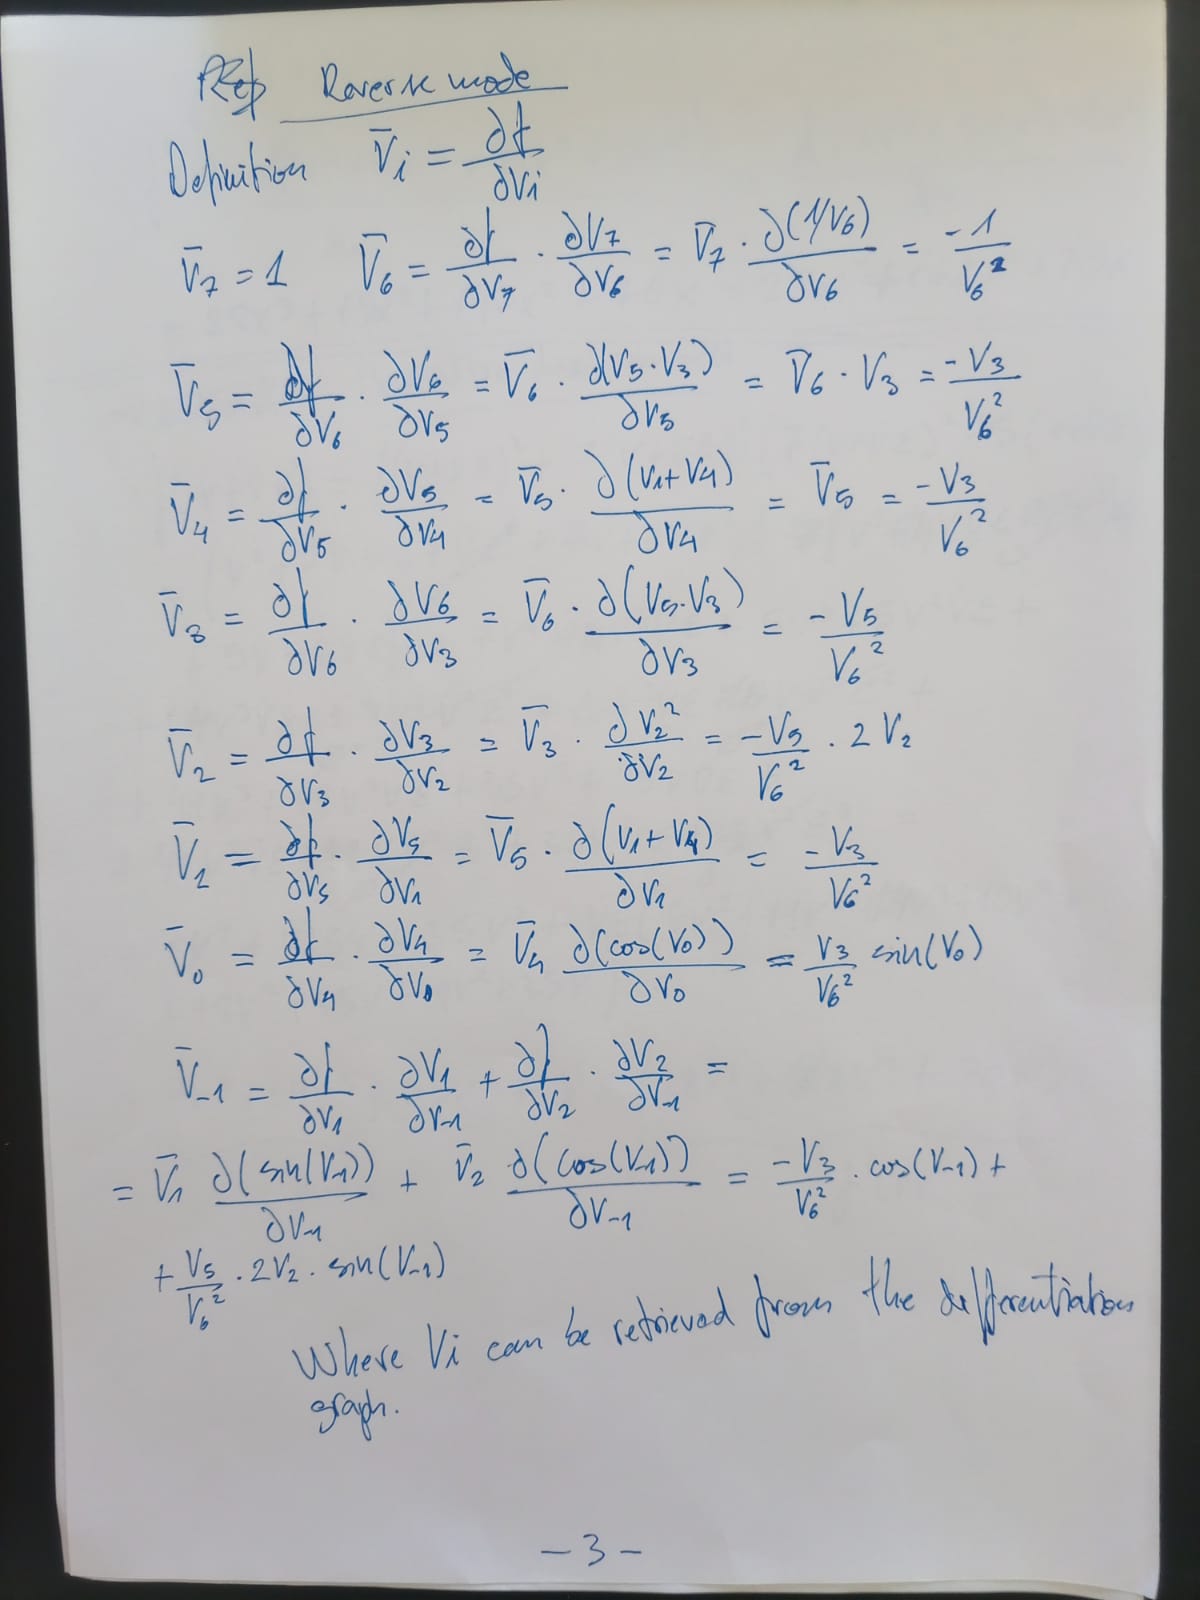 Reverse mode
Definition V̄i = ∂f/∂Vi
V̄7 = 1 V̄6 = ∂f/∂V7 · ∂V7/∂V6 = V̄7 · ∂(1/V6)/∂V6 = -1/V6²
V̄5 = ∂f/∂V6 · ∂V6/∂V5 = V̄6 · ∂(V5·V3)/∂V5 = V̄6 · V3 = -V3/V6²
V̄4 = ∂f/∂V5 · ∂V5/∂V4 = V̄5 · ∂(V1+V4)/∂V4 = V̄5 = -V3/V6²
V̄3 = ∂f/∂V6 · ∂V6/∂V3 = V̄6 · ∂(V5·V3)/∂V3 = -V5/V6²
V̄2 = ∂f/∂V3 · ∂V3/∂V2 = V̄3 · ∂V2²/∂V2 = -V5/V6² · 2V2
V̄1 = ∂f/∂V5 · ∂V5/∂V1 = V̄5 · ∂(V1+V4)/∂V1 = -V3/V6²
V̄0 = ∂f/∂V4 · ∂V4/∂V0 = V̄4 ∂(cos(V0))/∂V0 = V3/V6² sin(V0)
V̄-1 = ∂f/∂V1 · ∂V1/∂V-1 + ∂f/∂V2 · ∂V2/∂V-1 =
= V̄1 ∂(sin(V-1))/∂V-1 + V̄2 ∂(cos(V-1))/∂V-1 = -V3/V6² · cos(V-1) +
+ V5/V6² · 2V2 · sin(V-1)
Where Vi can be retrieved from the differentiation
graph.
-3-